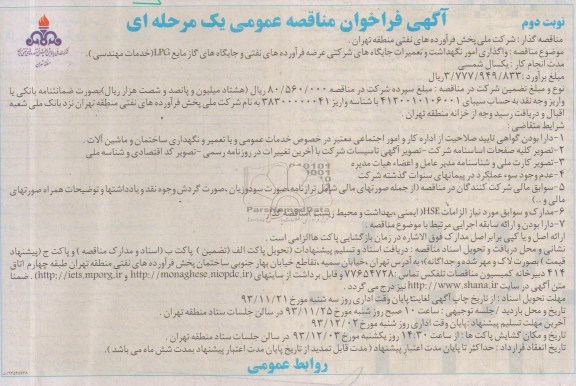 آگهی فراخوان مناقصه عمومی یک مرحله ای
نوبت دوم
مناقصه گذار : شرکت ملی پخش فرآورده های نفتی منطقه تهران.
موضوع مناقصه : واگذاری امور نگهداشت و تعمیرات جایگاه های شرکتی عرضه فرآورده های نفتی و جایگاه های گاز مایع LPG(خدمات مهندسی).
مدت انجام کار : یکسال شمسی
مبلغ برآورد : ۳/۷۷۷/۹۴۹/۸۳۳ ریال
نوع و مبلغ تضمین شرکت در مناقصه : مبلغ سپرده شرکت در مناقصه ۸۰/۵۶۰/۰۰۰ ریال (هشتاد میلیون و پانصد و شصت هزار ریال)بصورت ضمانتنامه بانکی یا
واریز وجه نقد به حساب سیبای ۴۱۲۰۰۱۰۱۰۶۰۰۱ با شناسه واریز ۳۸۳۰۰۰۰۰۰۴۱ به نام شرکت ملی پخش فرآورده های نفتی منطقه تهران نزد بانک ملی شعبه
اقبال و دریافت رسید وجه از خزانه منطقه تهران.
شرایط متقاضی :
۱-دارا بودن گواهی تایید صلاحیت از اداره کار و امور اجتماعی معتبر در خصوص خدمات عمومی و یا تعمیر و نگهداری ساختمان و ماشین آلات.
۲-تصویر کلیه صفحات اساسنامه شرکت -تصویر آگهی تاسیسات شرکت با آخرین تغییرات در روزنامه رسمی -تصویر کد اقتصادی و شناسه ملی
۳-تصویر کارت ملی و شناسنامه مدیر عامل و اعضاء هیات مدیره
۴-عدم وجود سوء عملکرد در پیمانهای سنوات گذشته شرکت
۵-سوابق مالی شرکت کنندگان در مناقصه (از جمله صورتهای مالی شامل ترازنامه،صورت سودوزیان ،صورت گردش وجوه نقد و یادداشتها و توضیحات همراه صورتهای
مالی و ...)
۶-مدارک و سوابق مورد نیاز الزامات HSE( ایمنی ،بهداشت و محیط زیست )مناقصه گذار
۷-دارا بودن و ارائه سابقه اجرایی مرتبط با موضوع مناقصه .
ارائه اصل و یا کپی برابر اصل مدارک فوق الاشاره در زمان بازگشایی پاکت ها الزامی است .
نشانی و محل دریافت و تحویل اسناد مناقصه : دریافت اسناد و تسلیم پیشنهادات (تحویل پاکت الف (تضمین ) پاکت ب (اسناد و مدارک مناقصه ) و پاکت ج (پیشنهاد
قیمت ) بصورت لاک و مهر شده و جداگانه) به آدرس تهران ،خیابان سمیه ،تقاطع خیابان بهار جنوبی ساختمان پخش فرآورده های نفتی منطقه تهران طبقه چهارم اتاق
۴۱۴ دبیرخانه کمیسیون مناقصات تلفکس تماس :۷۷۶۵۴۷۲۸ و قابل برداشت از سایتهای (http://monaghese.niopdc.ir و http://iets.mporg.ir). ضمنا
متن آگهی در سایت http://www.shana.ir نیز درج می گردد .
مهلت تحویل اسناد : از تاریخ چاپ آگهی لغایت پایان وقت اداری روز سه شنبه مورخ ۹۳/۱۱/۲۱
تاریخ و محل بازدید /جلسه توجیهی : ساعت ۱۰ صبح روز شنبه مورخ ۹۳/۱۱/۲۵ در سالن جلسات ستاد منطقه تهران .
آخرین مهلت تسلیم پیشنهاد :پایان وقت اداری روز شنبه مورخ ۹۳/۱۲/۰۲
تاریخ و مکان گشایش پاکت ها : از ساعت ۱۴:۳۰ روز یکشنبه مورخ ۹۳/۱۲/۰۳ در سالن جلسات ستاد منطقه تهران .
تاریخ انعقاد قرارداد : حداکثر تا پایان مدت اعتبار پیشنهاد ( مدت قابل تمدید از تاریخ پایان مدت اعتبار پیشنهاد بمدت شش ماه می باشد ).
روابط عمومی